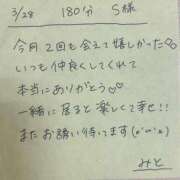 3/28 180分 S様
今月2回も会えて嬉しかった
いつも仲良くしてくれて
本当にありがとう♡
一緒に居ると楽しくて幸せ!!
またお誘い待ってます
みと